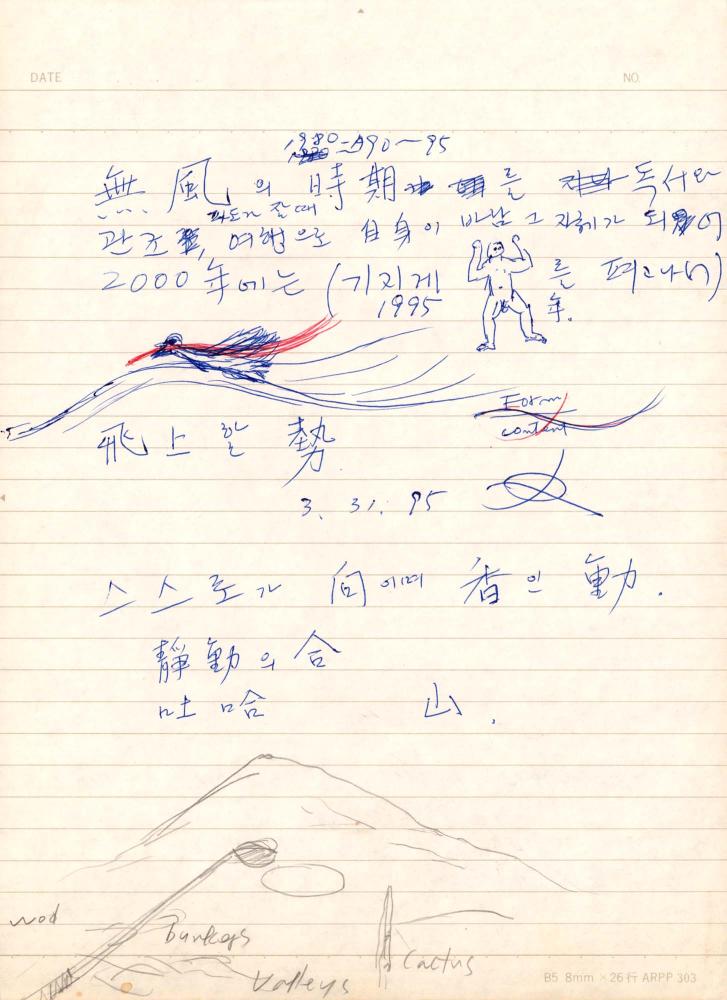 DATE NO.
1980 = A90~95
無風의 時期를 독서와
파도가 잘 때
관조, 여행으로 自身이 바람 그 자체가 되어
2000年에는 (기지게 를 펴고나며)
1995 年.
Form
content
飛上할 勢
3. 31. 95
스스로가 向이며 香인 動.
靜動의 合
吐哈 山.
wod
bunkers
Cactus
Valleys
B5 8mm × 26行 ARPP 303